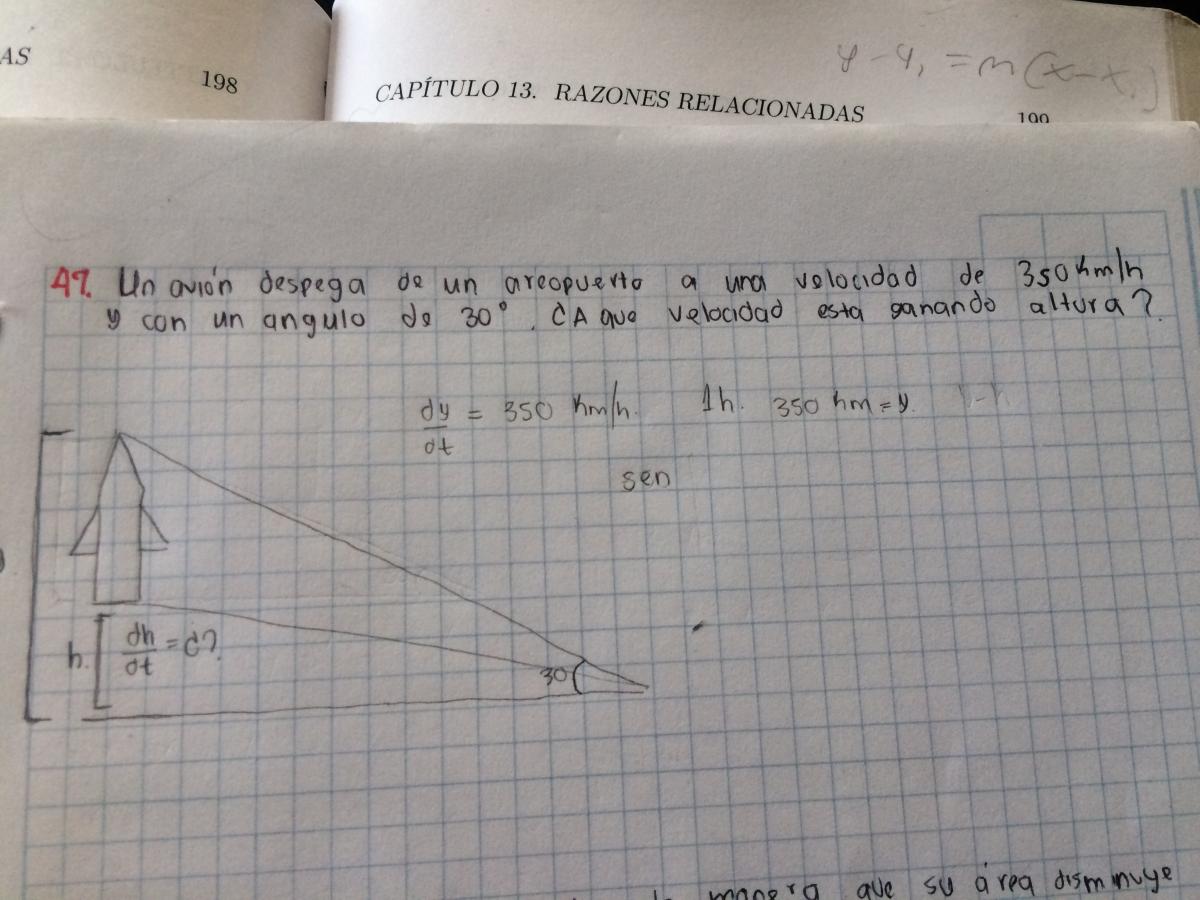 AS
198
CAPÍTULO 13. RAZONES RELACIONADAS
199
y - y₁ = m(x - x₁)
A7. Un avión despega de un areopuerto a una velocidad de 350 km/h
y con un angulo de 30°. ¿A que velocidad esta ganando altura?
dy/dt = 350 km/h. 1h. 350 km = y.
sen
h. dh/dt = ¿?
30
manera que su área disminuye